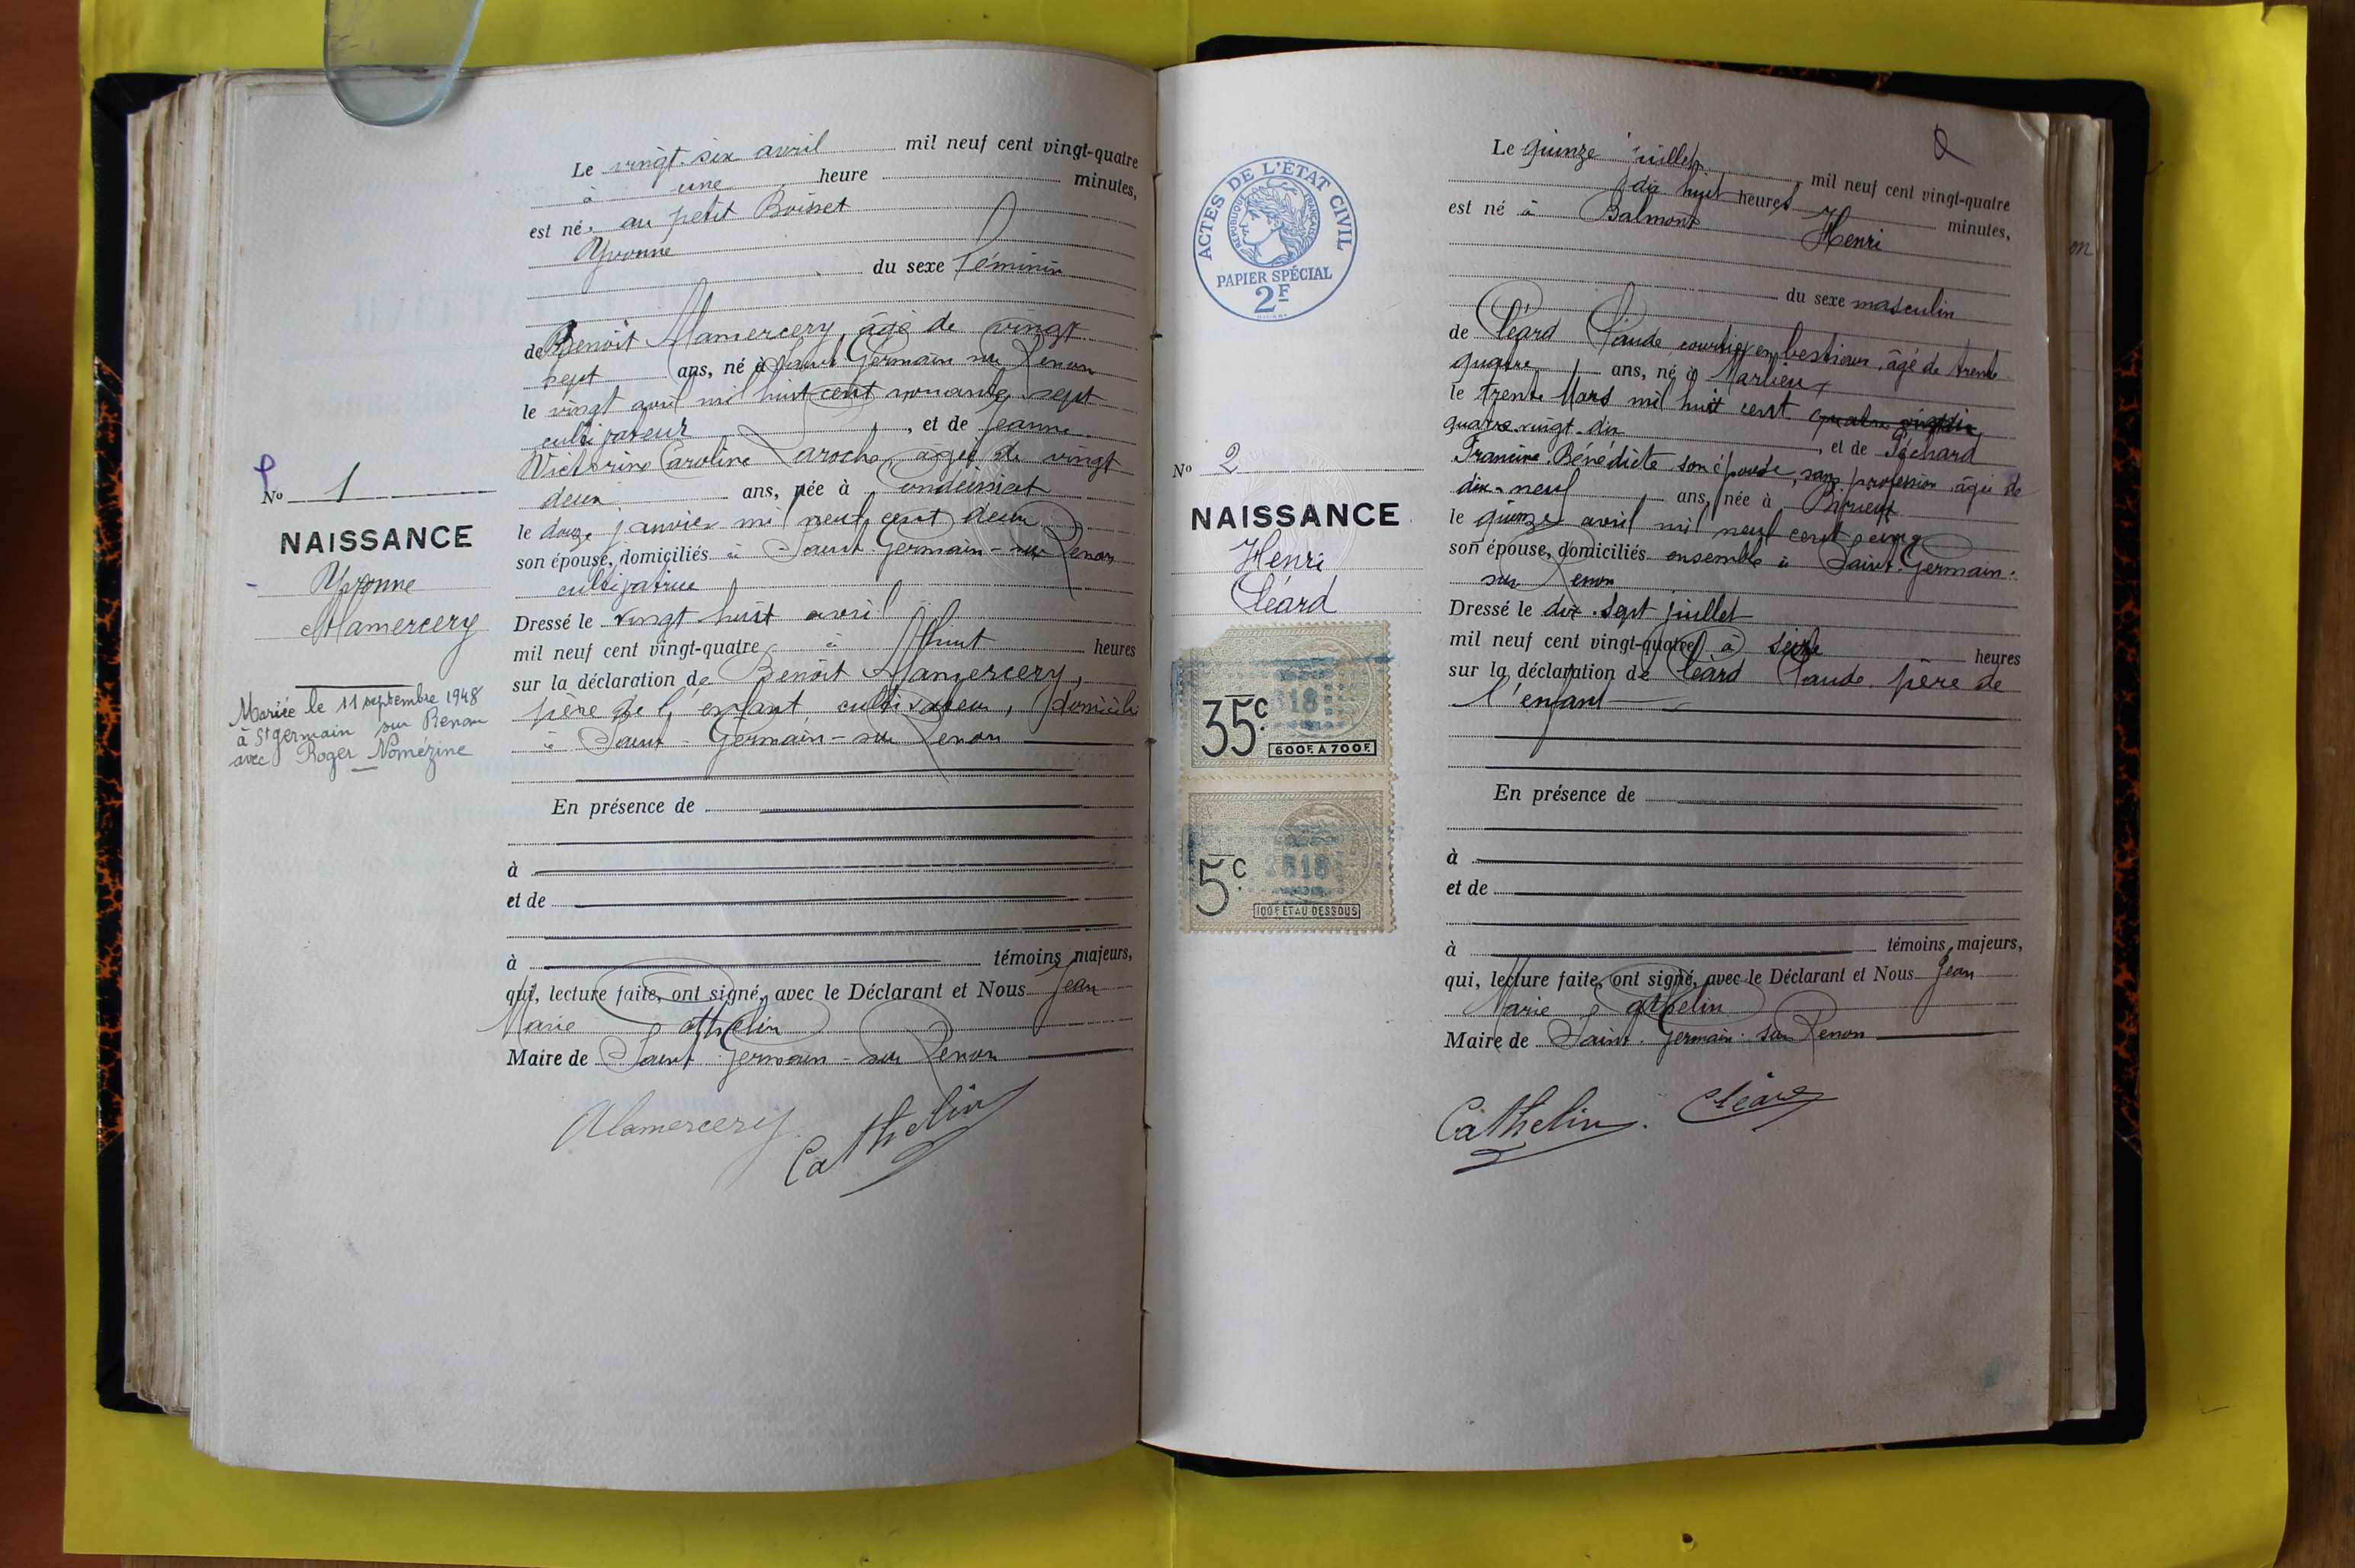 Le vingt-six avril mil neuf cent vingt-quatre
à une heure minutes,
est né, au petit Boisset
Yvonne
du sexe féminin
de Benoit Mamercery, âgé de vingt
sept ans, né à Saint Germain sur Renon
le vingt avril mil huit cent nonante sept
cultivateur, et de Jeanne
Victorine Caroline Laroche, âgée de vingt
deux ans, née à Condeissiat
le douze janvier mil neuf cent deux
son épouse, domiciliés à Saint-Germain-sur Renon
cultivatrice
Dressé le vingt huit avril
mil neuf cent vingt-quatre à huit heures
sur la déclaration de Benoit Mamercery,
père de l'enfant, cultivateur, domicilié
à Saint-Germain-sur Renon
En présence de
à
et de
à témoins majeurs,
qui, lecture faite, ont signé, avec le Déclarant et Nous Jean
Marie Cathelin
Maire de Saint Germain-sur Renon
Mamercery
Cathelin
No 1
NAISSANCE
Yvonne
Mamercery
Mariée le 11 septembre 1948
à St germain sur Renon
avec Roger Nomézine
ACTES DE L'ÉTAT CIVIL
RÉPUBLIQUE FRANÇAISE
PAPIER SPÉCIAL
2F
No 2
NAISSANCE
Henri
Cléard
35c.
600F. A 700F.
5c.
100F ET AU DESSOUS
Le quinze juillet mil neuf cent vingt-quatre
à dix huit heures minutes,
est né à Balmont Henri
du sexe masculin
de Cléard Claude, courtier en bestiaux, âgé de trente
quatre ans, né à Marlieux
le trente Mars mil huit cent quatre vingt dix
quatre-vingt-dix, et de Péchard
Francine Bénédicte son épouse, sans profession, âgée de
dix-neuf ans, née à Birieux
le quinze avril mil neuf cent cinq
son épouse, domiciliés ensemble à Saint-Germain-
sur Renon
Dressé le dix-sept juillet
mil neuf cent vingt-quatre à seize heures
sur la déclaration de Cléard Claude père de
l'enfant
En présence de
à
et de
à témoins majeurs,
qui, lecture faite, ont signé, avec le Déclarant et Nous Jean
Marie Cathelin
Maire de Saint-Germain-sur Renon
Cathelin. Cléard